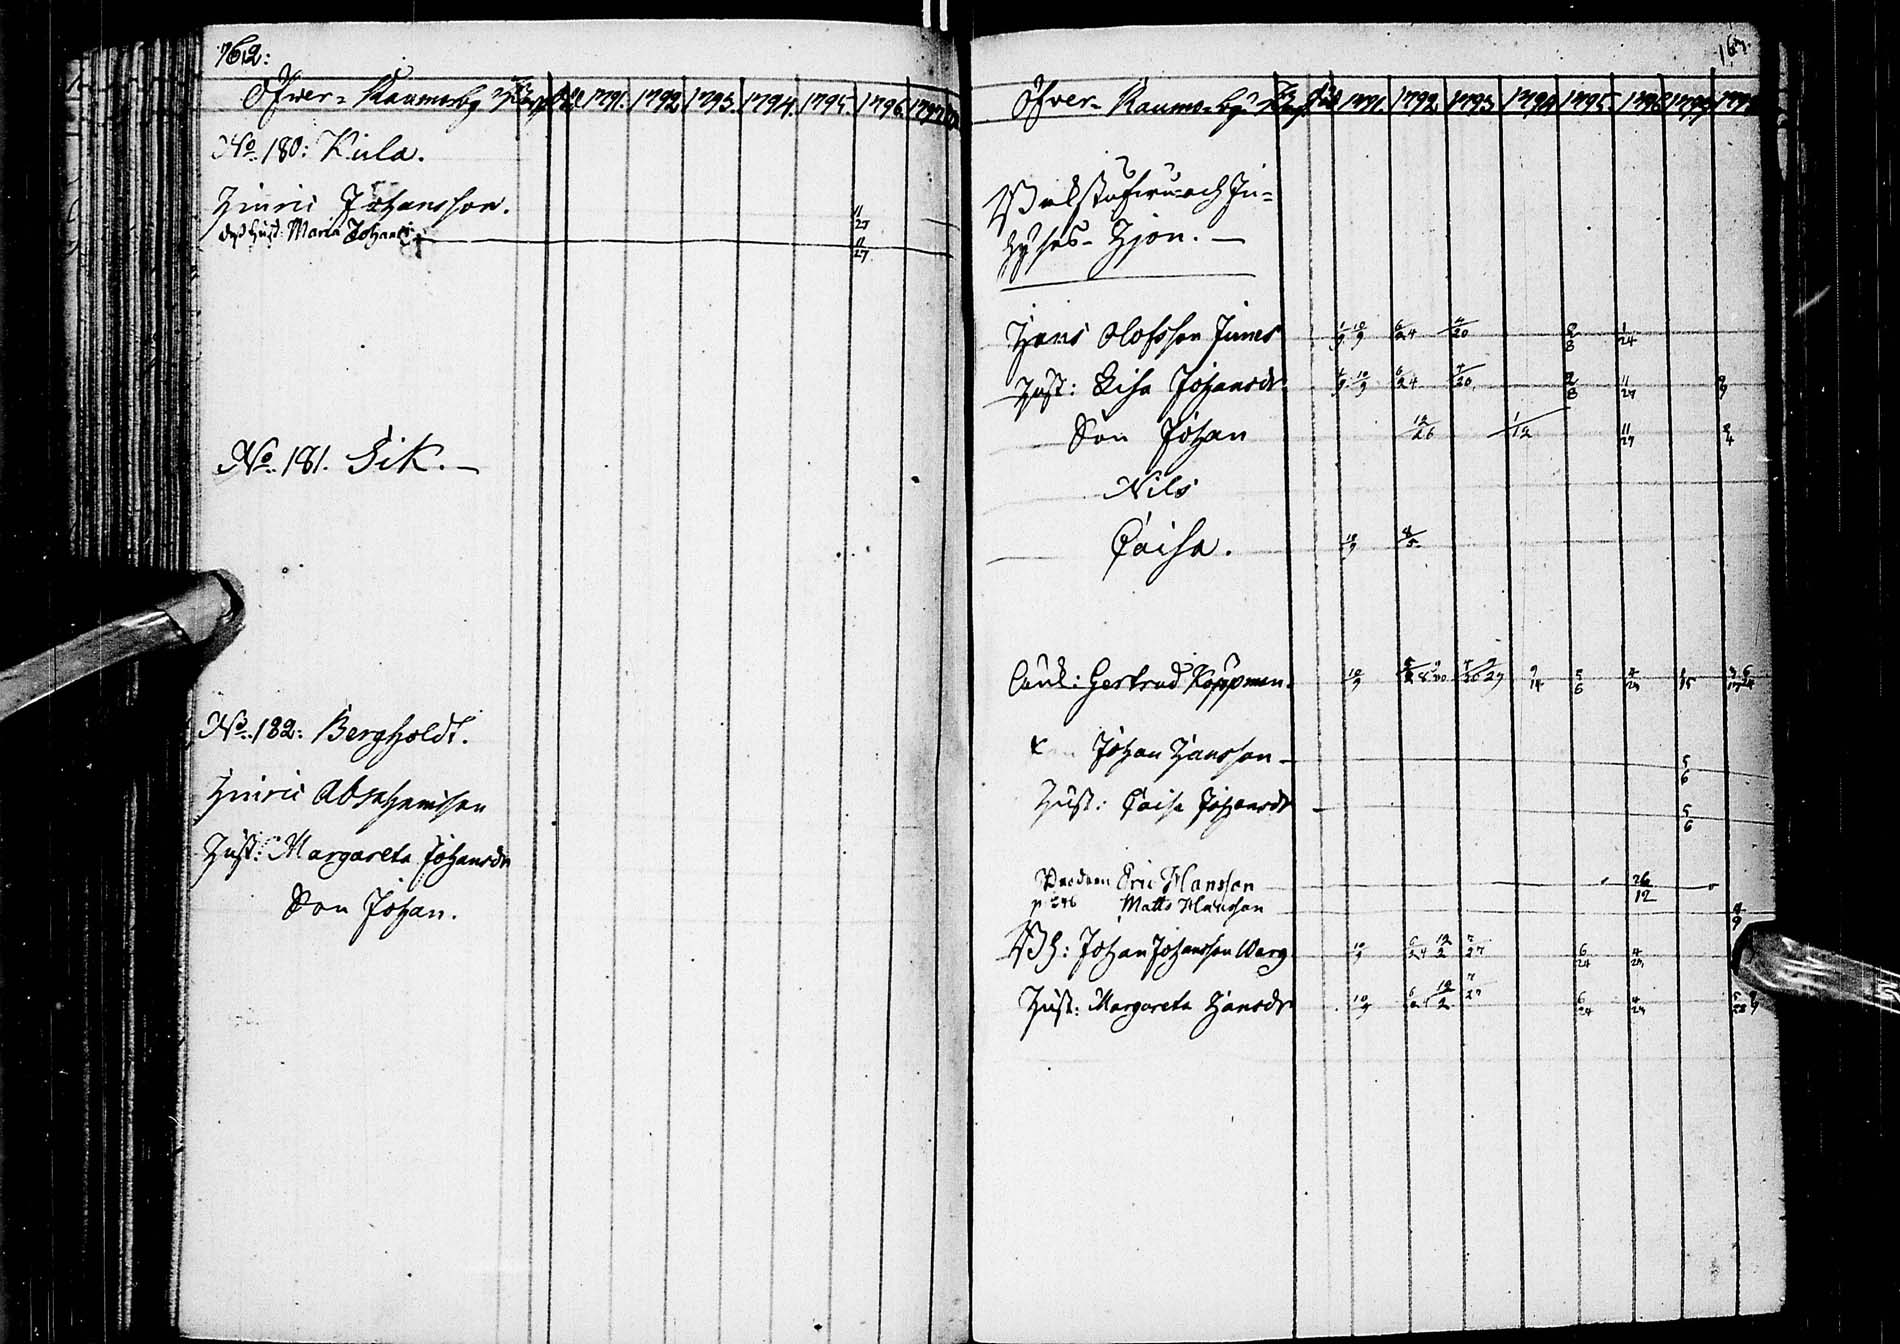 762:
Öfver-Raumo by 1791. 1792 1793. 1794. 1795. 1796. 1797
No. 180: Kula.
Hinric Johansson. 11/27
dess Hust: Maria Johansdr 11/27
No. 181. Sik.
No. 182: Bergholdt.
Hinric Abrahamsson
Hust: Margareta Johansdr
Son Johan.
Öfver-Raumo-by 1791. 1792 1793 1794 1795 1796 1797
Backstufvu- och In-
hyses-Hjon.
Hans Olofsson 6/24 4/20 2/8
Hust: Lisa Johansdr 6/24 4/20 2/8 11/27
Son Johan 12/26 1/12 11/27 2/4
Nils
Caisa. 10/9
Enk: Gertrud Koppman. 10/9 9/14 5/6 4/24 1/15
Johan Hansson 5/6
Hust: Caisa Johansdr 5/6
Eric Hansson 26/12
p 246 Matts Hansson 4/9
Bh: Johan Johansson Varg 10/9 6/24 12/2 7/27 6/24 4/24
Hust: Margareta Hansdr 10/9 12/2 7/27 6/24 4/24